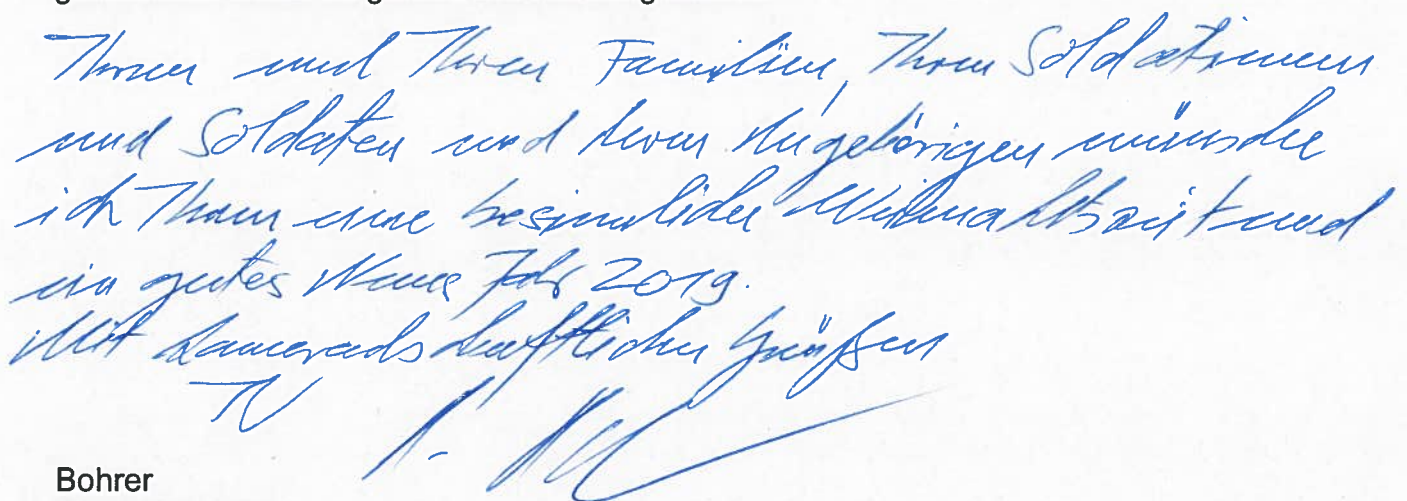 Ihnen und Ihren Familien, Ihren Soldatinnen
und Soldaten und deren Angehörigen wünsche
ich Ihnen eine besinnliche Weihnachtszeit und
ein gutes Neues Jahr 2019.
Mit kameradschaftlichen Grüßen
Bohrer